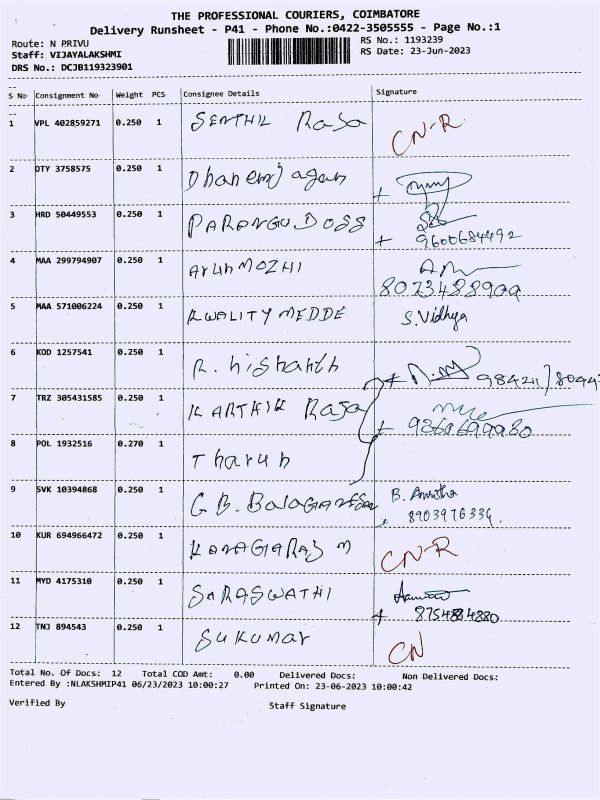 THE PROFESSIONAL COURIERS, COIMBATORE
Delivery Runsheet - P41 - Phone No.:0422-3505555 - Page No.:1
Route: N PRIVU
RS No.: 1193239
Staff: VIJAYALAKSHMI
RS Date: 23-Jun-2023
DRS No.: DCJB119323901
S No Consignment No Weight PCS Consignee Details Signature
1 VPL 402859271 0.250 1 SENTHIL RaJa CN-R
2 OTY 3758575 0.250 1 Dhanenjagan
3 HRD 50449553 0.250 1 PARANGUDOSS + 9600684492
4 MAA 299794907 0.250 1 ArunMOZHI
8073488909
5 MAA 571006224 0.250 1 KWALITY MEDDE S.Vidhya
6 KOD 1257541 0.250 1 R. Nishanth
7 TRZ 305431585 0.250 1 KARTHIK RaJa
8 POL 1932516 0.270 1 Tharun
9 SVK 10394868 0.250 1 G.B. BalaGanesan B. Amitha
8903976334
10 KUR 694966472 0.250 1 KANAGARAJ M CN-R
11 MYD 4175310 0.250 1 SARASWATHI
+ 8754884880
12 TNJ 894543 0.250 1 SUKUMAR CN
Total No. Of Docs: 12 Total COD Amt: 0.00 Delivered Docs: Non Delivered Docs:
Entered By :NLAKSHMIP41 06/23/2023 10:00:27 Printed On: 23-06-2023 10:00:42
Verified By Staff Signature